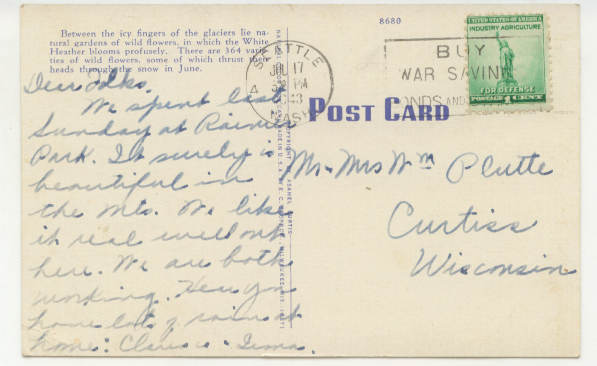 Between the icy fingers of the glaciers lie na-
tural gardens of wild flowers, in which the White
Heather blooms profusely. There are 364 varie-
ties of wild flowers, some of which thrust their
heads through the snow in June.
8680
SEATTLE
JUL 17
PM
WASH.
BUY
WAR SAVINGS
BONDS AND
UNITED STATES OF AMERICA
INDUSTRY AGRICULTURE
FOR DEFENSE
POSTAGE 1 CENT
POST CARD
Dear Folks.
We spent last
Sunday at Rainier
Park. It surely is
beautiful in
the Mts. We like
it real well out
here. We are both
working. Hear you
have lots of rain at
home.
Mr. Mrs Wm
Curtiss
Wisconsin